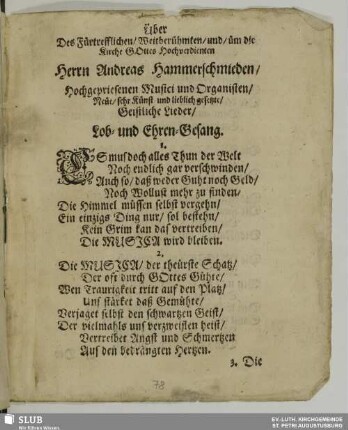 Über
Des Fürtrefflichen/ Weitberühmten/ und/ üm die
Kirche GOttes Hochverdienten
Herrn Andreas Hammerschmieden/
Hochgepriesenen Musici und Organisten/
Neüe/ sehr Künst und lieblich gesetzte/
Geistliche Lieder/
Lob- und Ehren-Gesang.
1.
ES mus doch alles Thun der Welt
Noch endlich gar verschwinden/
Auch so/ daß weder Guht noch Geld/
Noch Wollust mehr zu finden/
Die Himmel müssen selbst vergehn/
Ein eintzigs Ding nur/ sol bestehn/
Kein Grim kan das vertreiben/
Die MUSICA wird bleiben.
2.
Die MUSICA/ der theürste Schatz/
Der oft durch GOttes Gühte/
Wen Traurigkeit tritt auf den Platz/
Uns stärket daß Gemühte/
Verjaget selbst den schwartzen Geist/
Der vielmahls uns verzweiflen heist/
Vertreibet Angst und Schmertzen
Aus den bedrängten Hertzen.
3. Die
78
SLUB
Wir führen Wissen.
EV.-LUTH. KIRCHGEMEINDE
ST. PETRI AUGUSTUSBURG